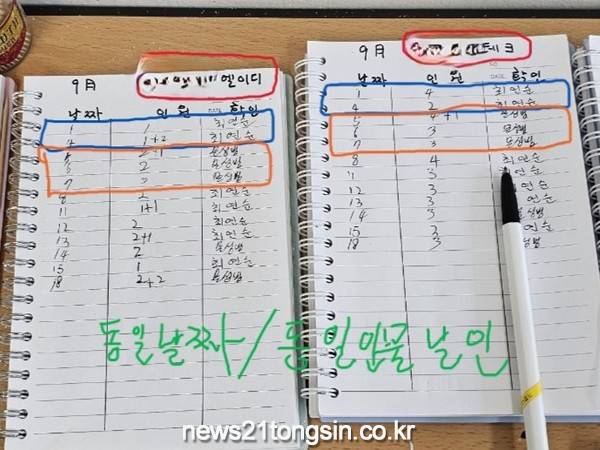 9月
엘이디
날짜 인원 확인
1 1 최연순
4 1+2 최연순
5 2+1 문성별
6 2
7 2 문성별
8 2 최연순
11 1+1 최연순
12 2 최연순
13 2+1 최연순
14 2 문성별
15 1 최연순
18 2+2 문성별
9月
테크
날짜 인원 DATE 확인
1 4 최연순
4 2 최연순
5 4+1 문성별
6 3 문성별
7 3 문성별
8 4 최연순
11 3 연순
12 3 최연순
13 3 최연순
14 3 문성별
15 3 최연순
18 3 성별
동일날짜/동일인물 날인
news21tongsin.co.kr